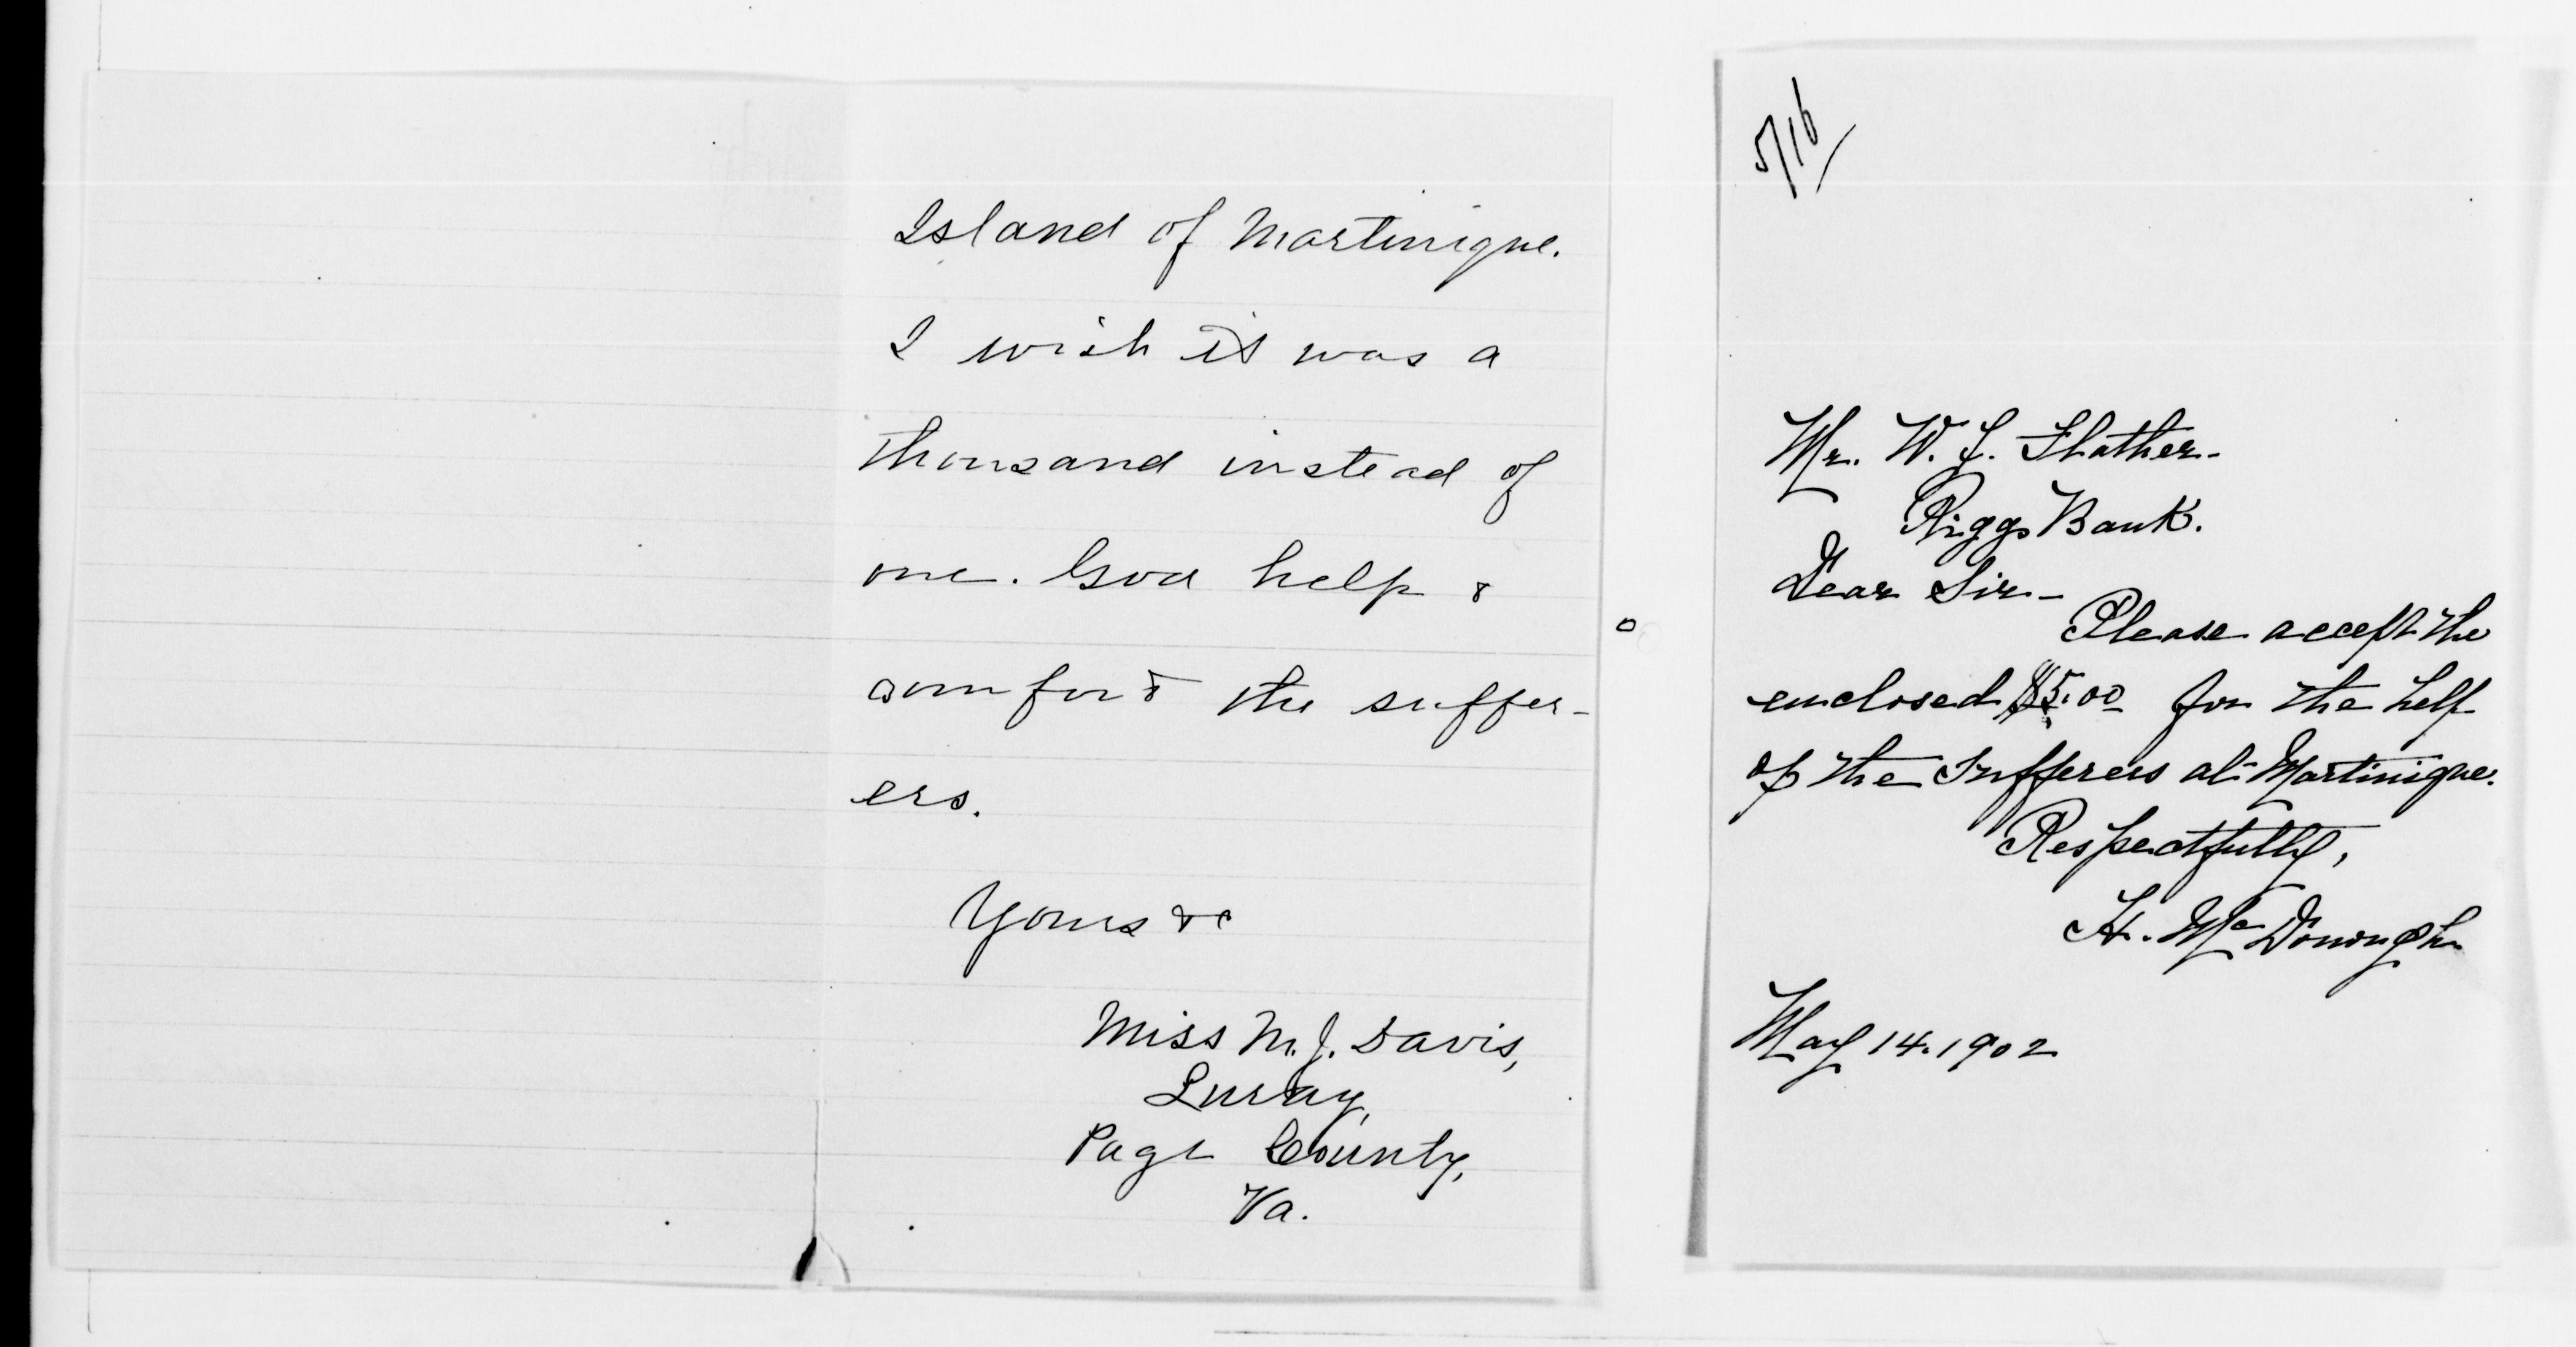 Island of Martinique.
I wish it was a
thousand instead of
one. God help &
comfort the suffer-
ers.
Yours &c
Miss M. J. Davis,
Luray,
Page County,
Va.
5/16
Mr. W. J. Flather-
Riggs Bank.
Dear Sir-
Please accept the
enclosed $5.00 for the help
of the Sufferers at Martinique.
Respectfully,
H. McDonogh
May 14. 1902